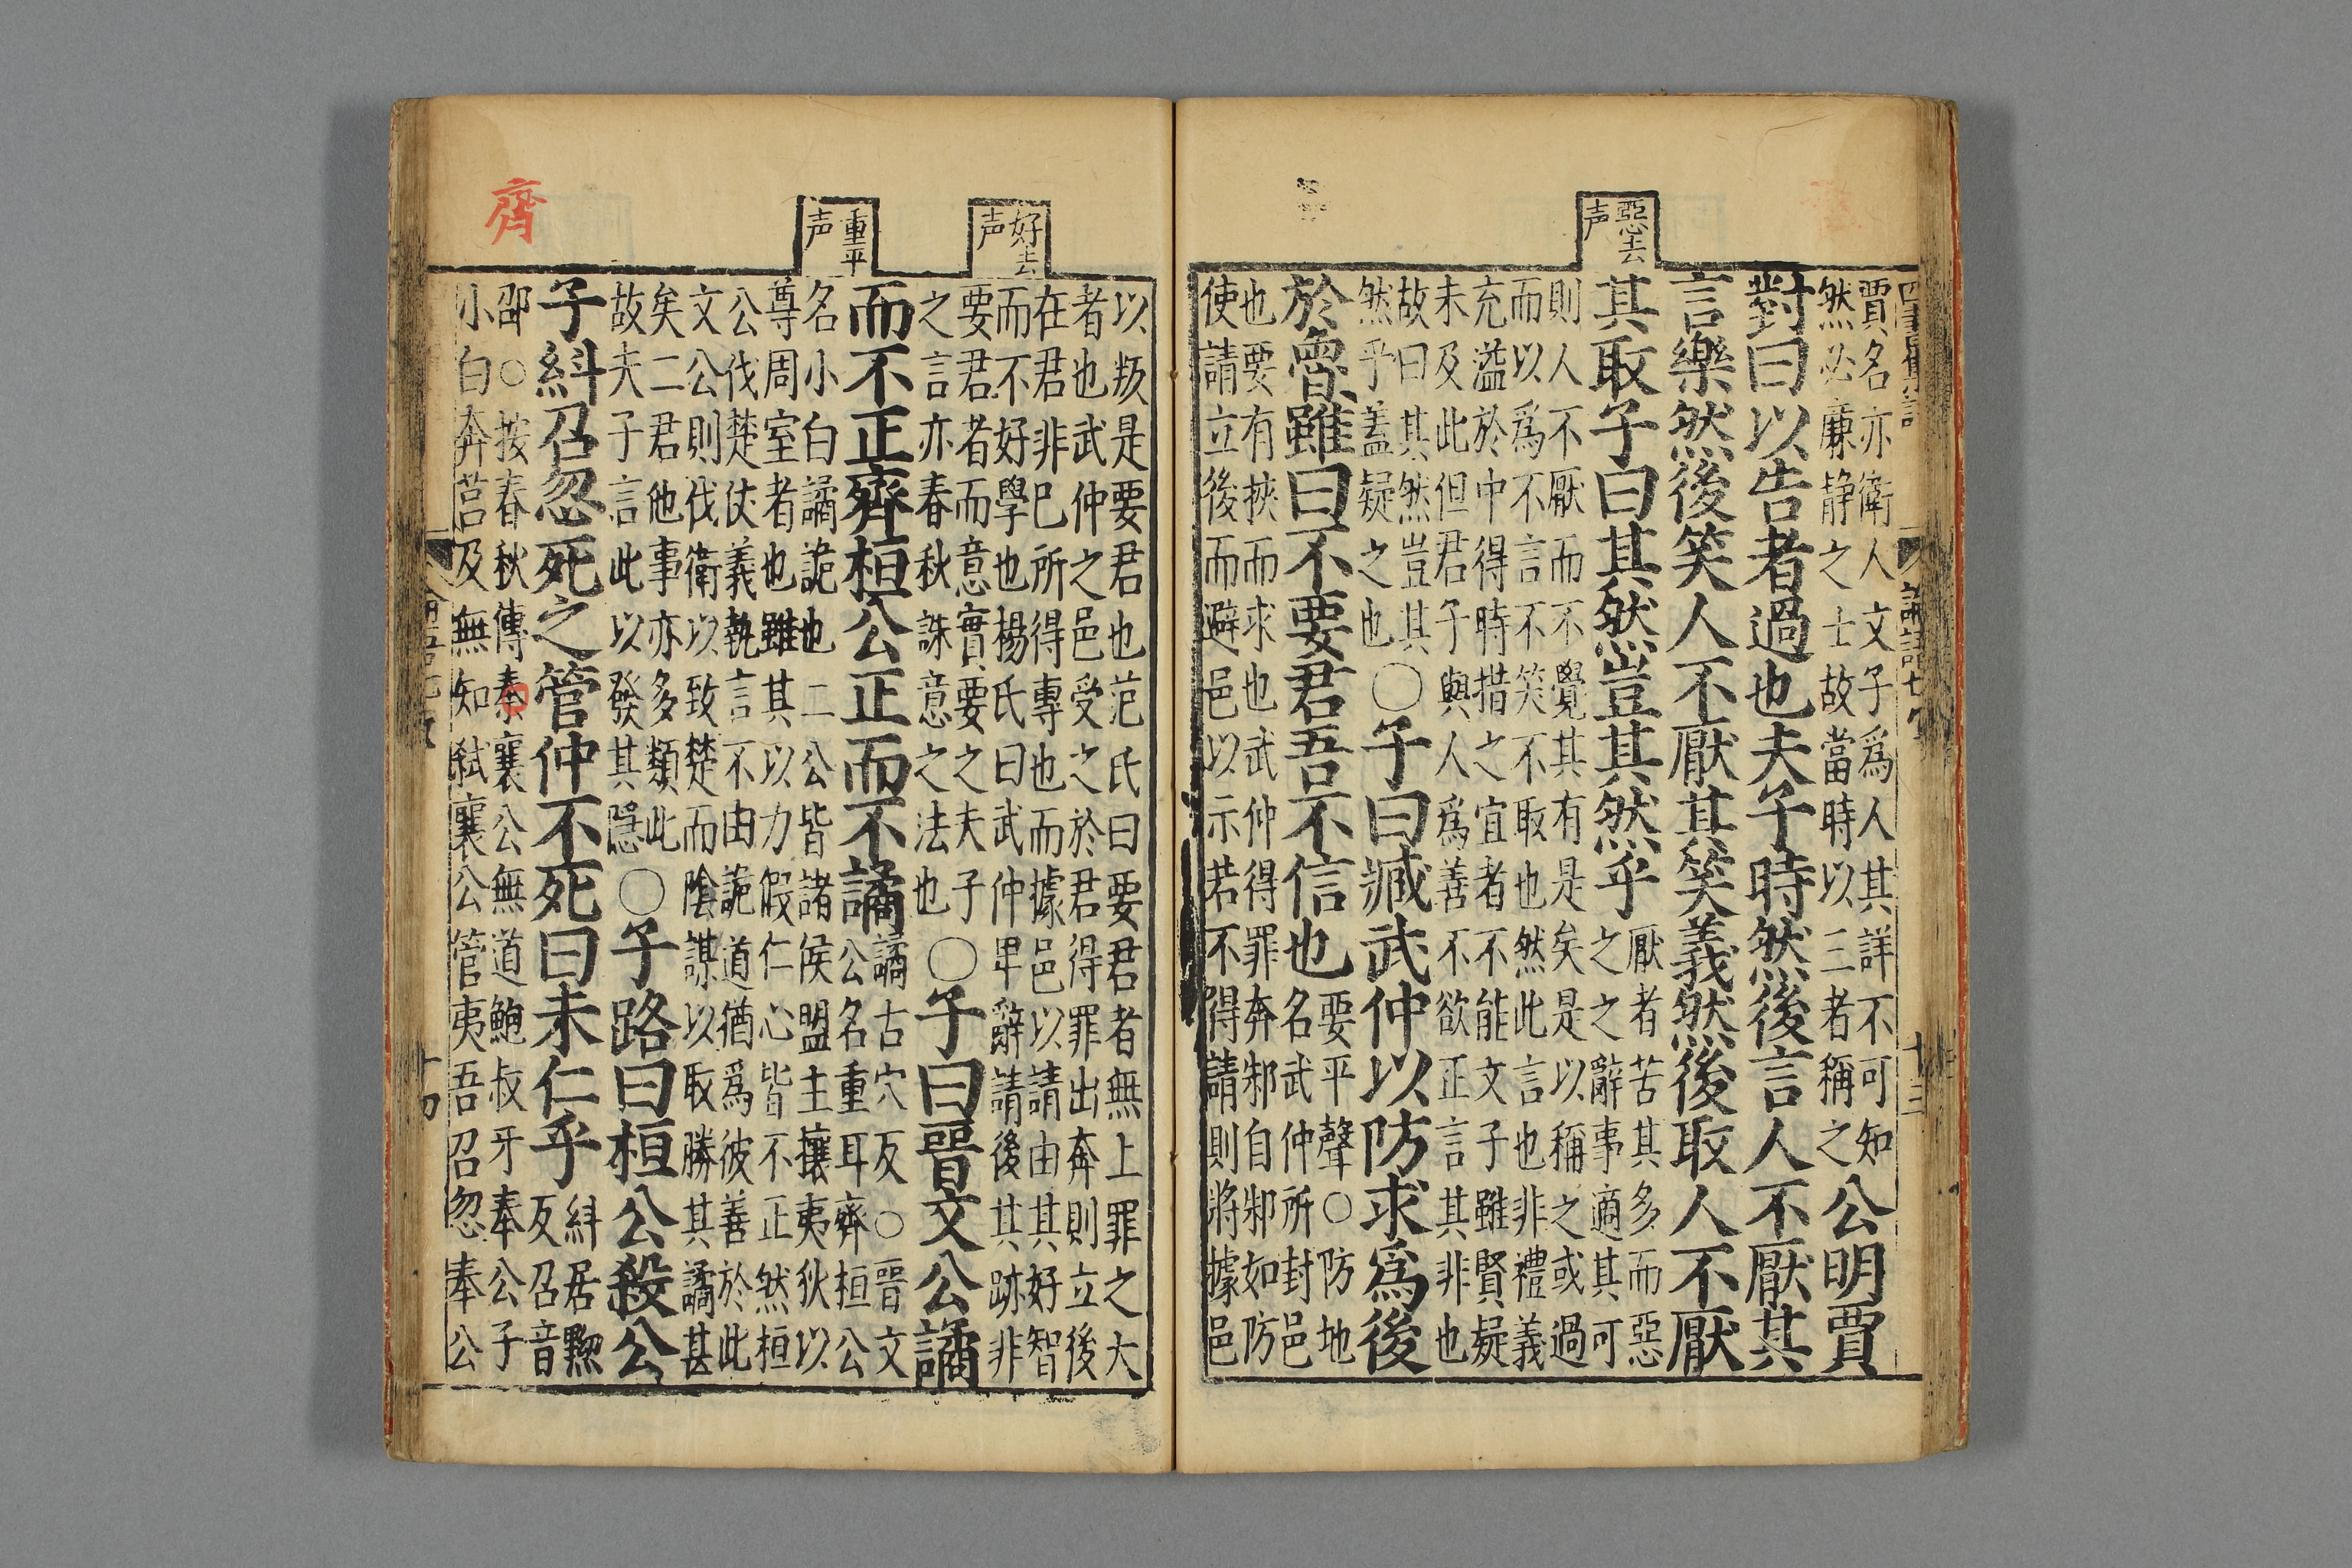 四書集註
論語七
十三
惡去
声
賈名亦衛人文子爲人其詳不可知
然必廉静之士故當時以三者稱之
公明賈
對曰以告者過也夫子時然後言人不厭其
言樂然後笑人不厭其笑義然後取人不厭
其取子曰其然豈其然乎
厭者苦其多而惡
之之辭事適其可
則人不厭而不覺其有是矣是以稱之或過
而以爲不言不笑不取也然此言也非禮義
充溢於中得時措之宜者不能文子雖賢疑
未及此但君子與人爲善不欲正言其非也
故曰其然豈其
然乎蓋疑之也
○子曰臧武仲以防求爲後
於魯雖曰不要君吾不信也
要平聲○防地
名武仲所封邑
也要有挾而求也武仲得罪奔邾自邾如防
使請立後而避邑以示若不得請則將據邑
好去
声
重平
声
齊
以叛是要君也范氏曰要君者無上罪之大
者也武仲之邑受之於君得罪出奔則立後
在君非已所得專也而據邑以請由其好智
而不好學也楊氏曰武仲卑辭請後其跡非
要君者而意實要之夫子
之言亦春秋誅意之法也
○子曰晋文公譎
而不正齊桓公正而不譎
譎古穴反○晋文
公名重耳齊桓公
名小白譎詭也二公皆諸侯盟主攘夷狄以
尊周室者也雖其以力假仁心皆不正然桓
公伐楚仗義執言不由詭道猶爲彼善於此
文公則伐衛以致楚而陰謀以取勝其譎甚
矣二君他事亦多類此
故夫子言此以發其隱
○子路曰桓公殺公
子糾召忽死之管仲不死曰未仁乎
糾居黝
反召音
邵○按春秋傳秦襄公無道鮑叔牙奉公子
小白奔莒及無知弑襄公管夷吾召忽奉公